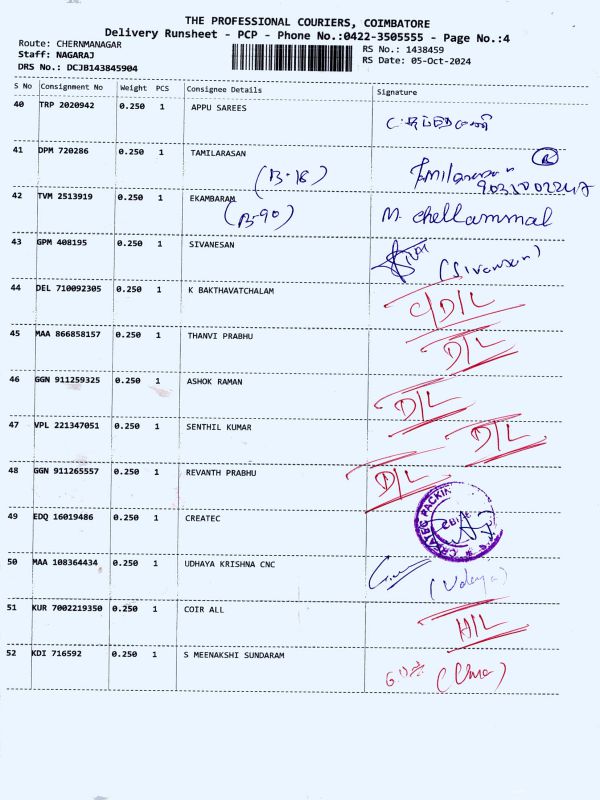 THE PROFESSIONAL COURIERS, COIMBATORE
Delivery Runsheet - PCP - Phone No.:0422-3505555 - Page No.:4
Route: CHERNMANAGAR
RS No.: 1438459
Staff: NAGARAJ
RS Date: 05-Oct-2024
DRS No.: DCJB143845904
S No Consignment No Weight PCS Consignee Details Signature
40 TRP 2020942 0.250 1 APPU SAREES
41 DPM 720286 0.250 1 TAMILARASAN Tamilarasan
(B-18)
42 TVM 2513919 0.250 1 EKAMBARAM M. Chellammal
(B-90)
43 GPM 408195 0.250 1 SIVANESAN (Sivanesan)
44 DEL 710092305 0.250 1 K BAKTHAVATCHALAM C/D/L
45 MAA 866858157 0.250 1 THANVI PRABHU D/L
46 GGN 911259325 0.250 1 ASHOK RAMAN D/L
47 VPL 221347051 0.250 1 SENTHIL KUMAR D/L
48 GGN 911265557 0.250 1 REVANTH PRABHU D/L
49 EDQ 16019486 0.250 1 CREATEC CREATEC PACKIN
50 MAA 108364434 0.250 1 UDHAYA KRISHNA CNC (Udaya)
51 KUR 7002219350 0.250 1 COIR ALL H/L
52 KDI 716592 0.250 1 S MEENAKSHI SUNDARAM (Uma)